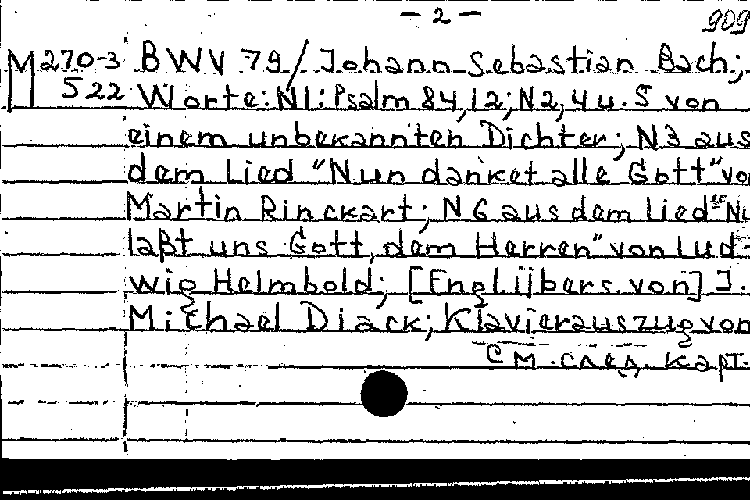 - 2 -
909
M 270-3 BWV 79/ Johann Sebastian Bach;
522 Worte: N1: Psalm 84,12; N2,4 u. 5 von
einem unbekannten Dichter; N3 aus
dem Lied "Nun danket alle Gott" vo
Martin Rinckart; N6 aus dem Lied "Nu
laßt uns Gott, dem Herren" von Lud-
wig Helmbold; [Engl. übers. von] J.
Michael Diack; Klavierauszug von
См. след. карт.